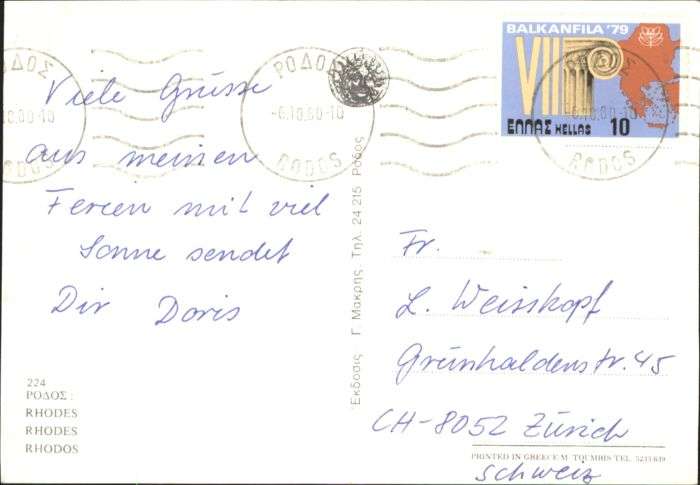 BALKANFILA '79
VIII
ΕΛΛΑΣ HELLAS 10
ΡΟΔΟΣ
-6.10.80-10
RODOS
ΡΟΔΟΣ
-6.10.80-10
RODOS
ΡΟΔΟΣ
.10.80-10
Viele Grüsse
aus meinen
Ferien mit viel
Sonne sendet
Dir Doris
224
ΡΟΔΟΣ:
RHODES
RHODES
RHODOS
Ἐκδοσις Γ Μακρης Τηλ. 24 215 Ρόδος
Fr.
L. Weisskopf
Grünhaldenstr. 45
CH-8052 Zürich
Schweiz
PRINTED IN GREECE M. TOUMBIS TEL.